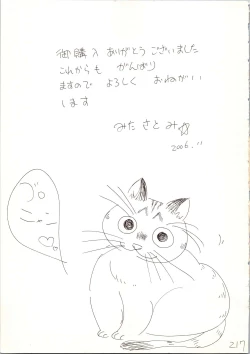 御購入ありがとうございました
これからも がんばり
ますので よろしく おねがい
します
みた さとみ☆
2006.11
217